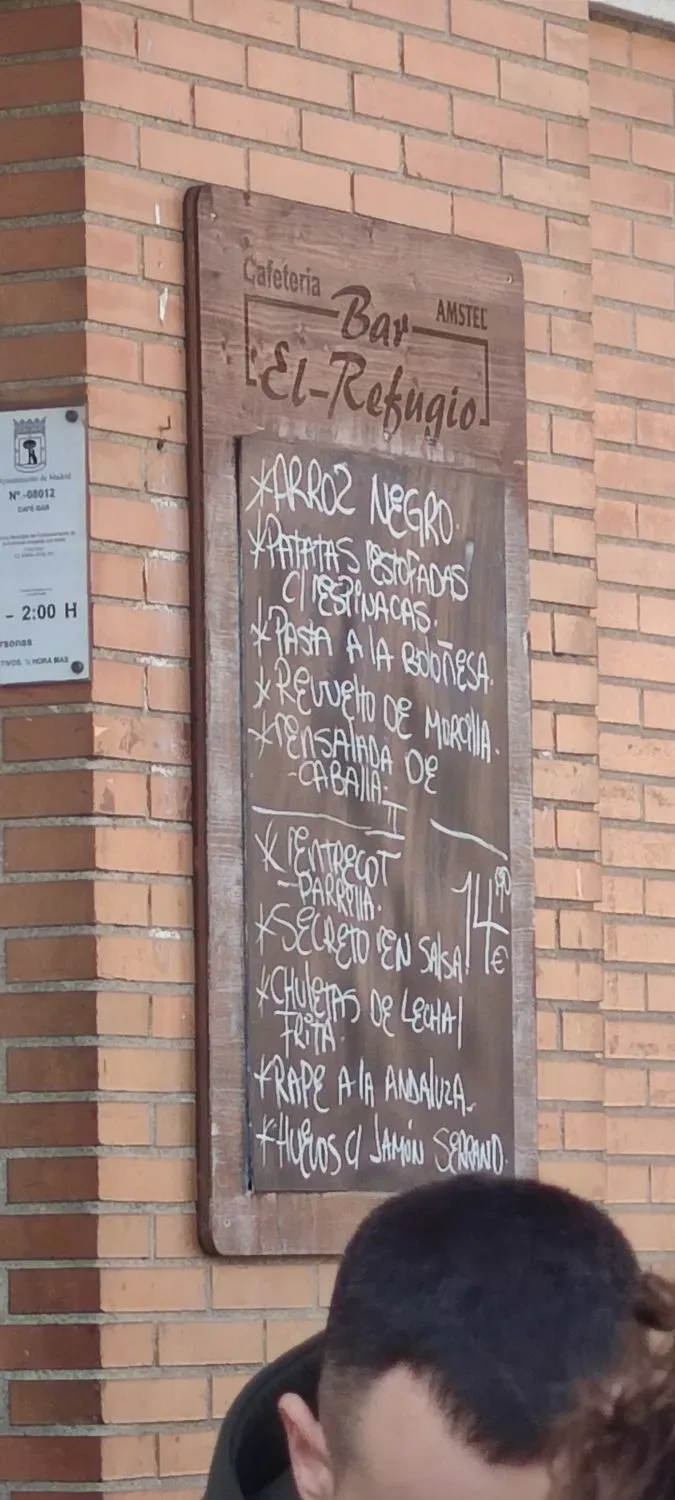 Cafeteria
AMSTEL
Bar
El-Refugio
*ARROZ NEGRO.
*PATATAS ESTOFADAS
C/ ESPINACAS.
*PASTA A LA BOLOÑESA.
*REVUELTO DE MORCILLA.
*ENSALADA DE
-CABALLA.
II
*ENTRECOT
-PARRILLA.
14,90
€
*SECRETO EN SALSA
*CHULETAS DE LECHAL
FRITA.
*RAPE A LA ANDALUZA.
*HUEVOS C/ JAMÓN SERRANO.
Ayuntamiento de Madrid
Nº -08012
CAFÉ-BAR
- 2:00 H
rsonas
TIVOS, ½ HORA MAS